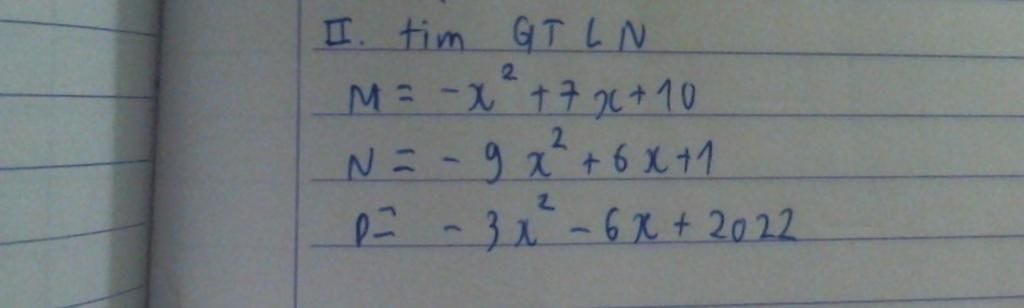 II. tim GTLN
M = -x² + 7x + 10
N = - 9x² + 6x + 1
P = - 3x² - 6x + 2022